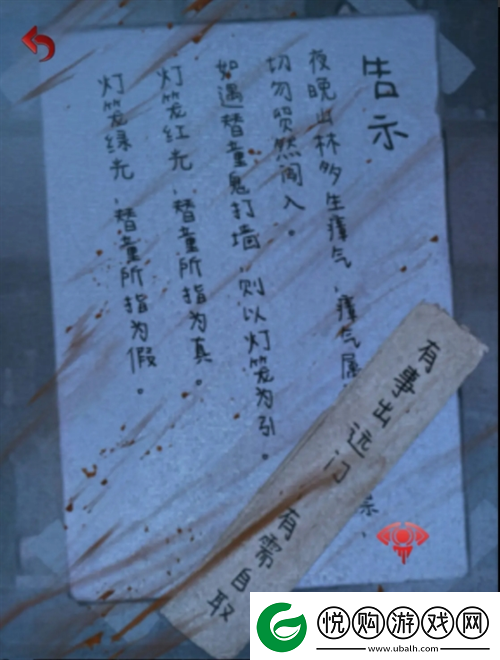 告示
夜晚山林多生瘴气，瘴气属
切勿贸然闯入。
如遇替童鬼打墙，则以灯笼为引。
灯笼红光，替童所指为真。
灯笼绿光，替童所指为假。
有事出远门
有需自取
悦购游戏网
www.ubalh.com